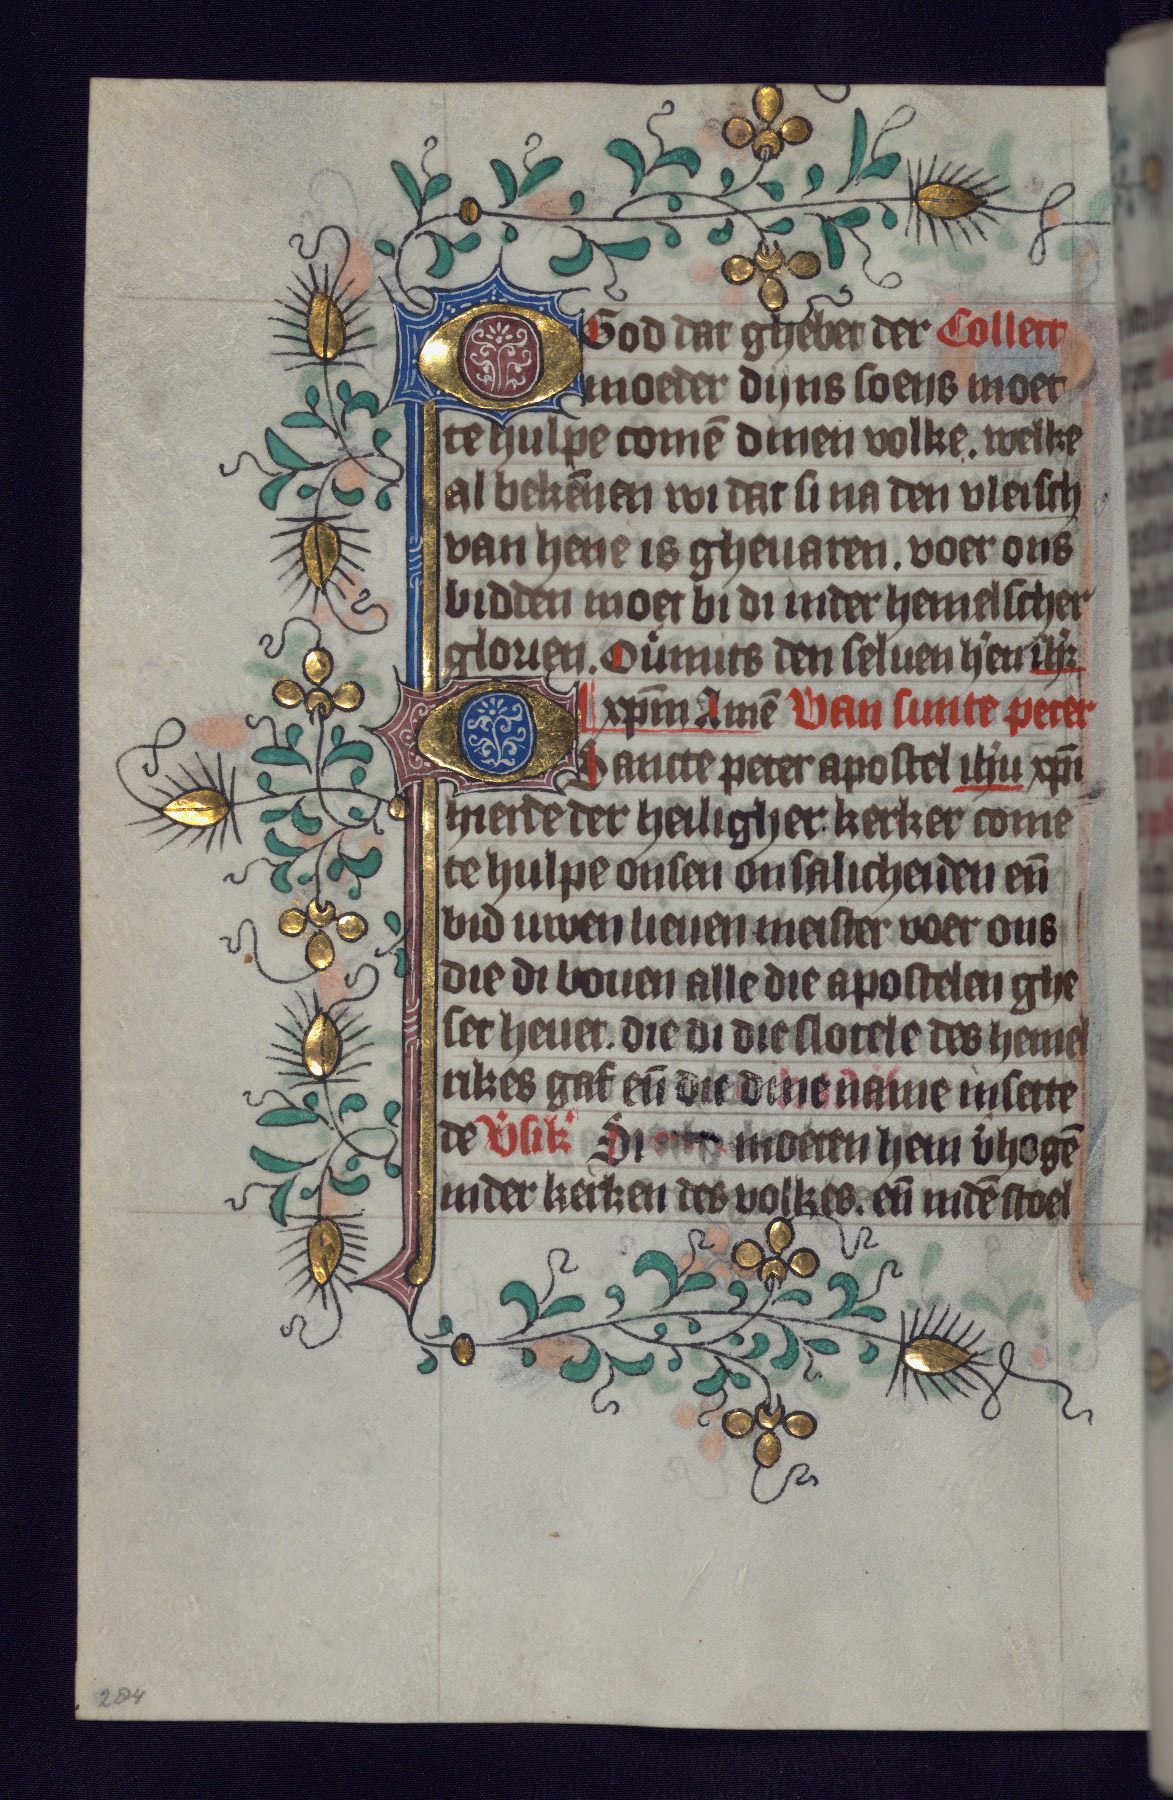 O God dat ghebet der Collect
moeder dijns soens moet
te hulpe comē dinen volke. welke
al bekēnen wi dat si na den vleisch
van hene is gheuaren. voer ons
bidden moet bi di inder hemelscher
glorien. Ouimits den seluen hēn ihm̄
xpm̄ Amē Van sunte peter
O Sancte peter apostel ihū xpī
hierde der heiligher kerker come
te hulpe onsen onsalicheiden eñ
bid uwen lieuen meister voer ons
die di bouen alle die apostelen ghe
set heuet. die di die slotele des hemel
rikes gaf eñ die dine name in sette
de Vsik' Si moeten hem v̄hogē
inder kerken des volkes. eñ indē stoel
284